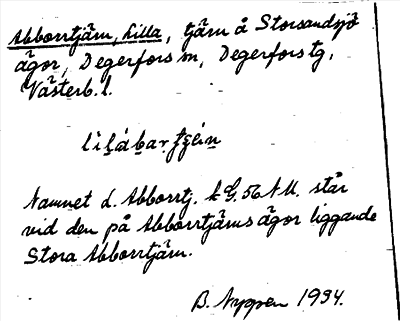 Abborrtjärn, Lilla, tjärn å Storsandsjö
ägor, Degerfors sn, Degerfors tg,
Västerb. l.
Namnet L. Abborrtj. k G. 56 N U. står
vid den på Abborrtjärns ägor liggande
Stora Abborrtjärn.
B. Nyppen 1934.